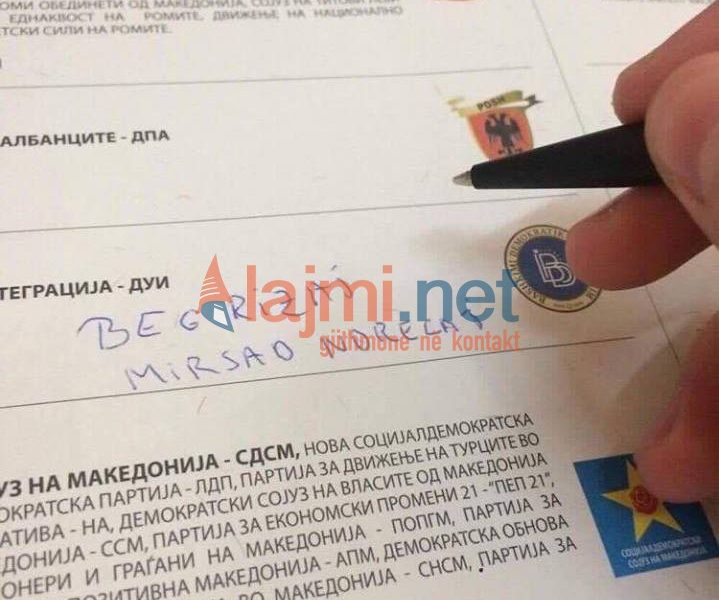 ОМИ ОБЕДИНЕТИ ОД МАКЕДОНИЈА, СОЈУЗ НА
ЕДНАКВОСТ НА РОМИТЕ, ДВИЖЕЊЕ НА НАЦИОНАЛНО
ТСКИ СИЛИ НА РОМИТЕ.
PDSH
АЛБАНЦИТЕ - ДПА
ТЕГРАЦИЈА - ДУИ
lajmi.net
gjithmonë në kontakt
BEGRIZAJ
MIRSAD
УЗ НА МАКЕДОНИЈА - СДСМ, НОВА СОЦИЈАЛДЕМОКРАТСКА
ОКРАТСКА ПАРТИЈА - ЛДП, ПАРТИЈА ЗА ДВИЖЕЊЕ НА ТУРЦИТЕ ВО
АТИВА - НА, ДЕМОКРАТСКИ СОЈУЗ НА ВЛАСИТЕ ОД МАКЕДОНИЈА
ЕДОНИЈА - ССМ, ПАРТИЈА ЗА ЕКОНОМСКИ ПРОМЕНИ 21 - "ПЕП 21",
ОНЕРИ И ГРАЃАНИ НА МАКЕДОНИЈА - ПОПГМ, ПАРТИЈА ЗА
ПОЗИТИВНА МАКЕДОНИЈА - АПМ, ДЕМОКРАТСКА ОБНОВА
ВО МАКЕДОНИЈА - СНСМ, ПАРТИЈА ЗА
СОЦИЈАЛДЕМОКРАТСКИ
СОЈУЗ НА МАКЕДОНИЈА